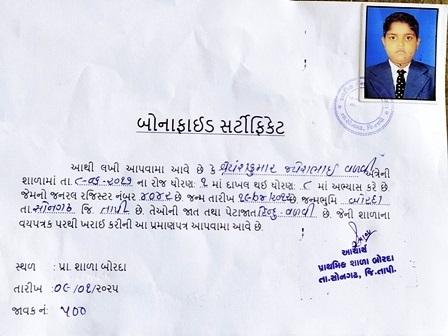 બોનાફાઈડ સર્ટીફિકેટ
આથી લખી આપવામાં આવે છે કે વળવી અત્રેની
શાળામાં તા. ના રોજ ધોરણ ૧ માં દાખલ થઈ ધોરણ ૮ માં અભ્યાસ કરે છે.
જેમનો જનરલ રજિસ્ટર નંબર છે. જન્મ તારીખ છે જન્મભૂમિ બોરદા
તા. સોનગઢ જિ. તાપી છે. તેઓની જાત તથા પેટાજાત હિન્દુ-વળવી છે. જેની શાળાના
વયપત્રક પરથી ખરાઈ કરીની આ પ્રમાણપત્ર આપવામાં આવે છે.
આચાર્ય
પ્રાથમિક શાળા બોરદા
તા.સોનગઢ, જિ.તાપી.
સ્થળ : પ્રા. શાળા બોરદા
તારીખ : ૦૯/૦૧/૨૦૨૫
જાવક નં: ૫૦૦